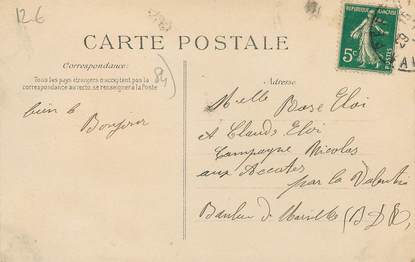 12-6
CARTE POSTALE
REPUBLIQUE FRANÇAISE
5c
POSTES
Correspondance:
Tous les pays étrangers n'acceptent pas la
correspondance au recto, se renseigner à la Poste
84
Adresse
bien le
Bonjour
Melle Rose Eloi
A Claude Eloi
Campagne Nicolas
aux Accates
par la Valentine
Banlieu de Marseille (B-D-R),